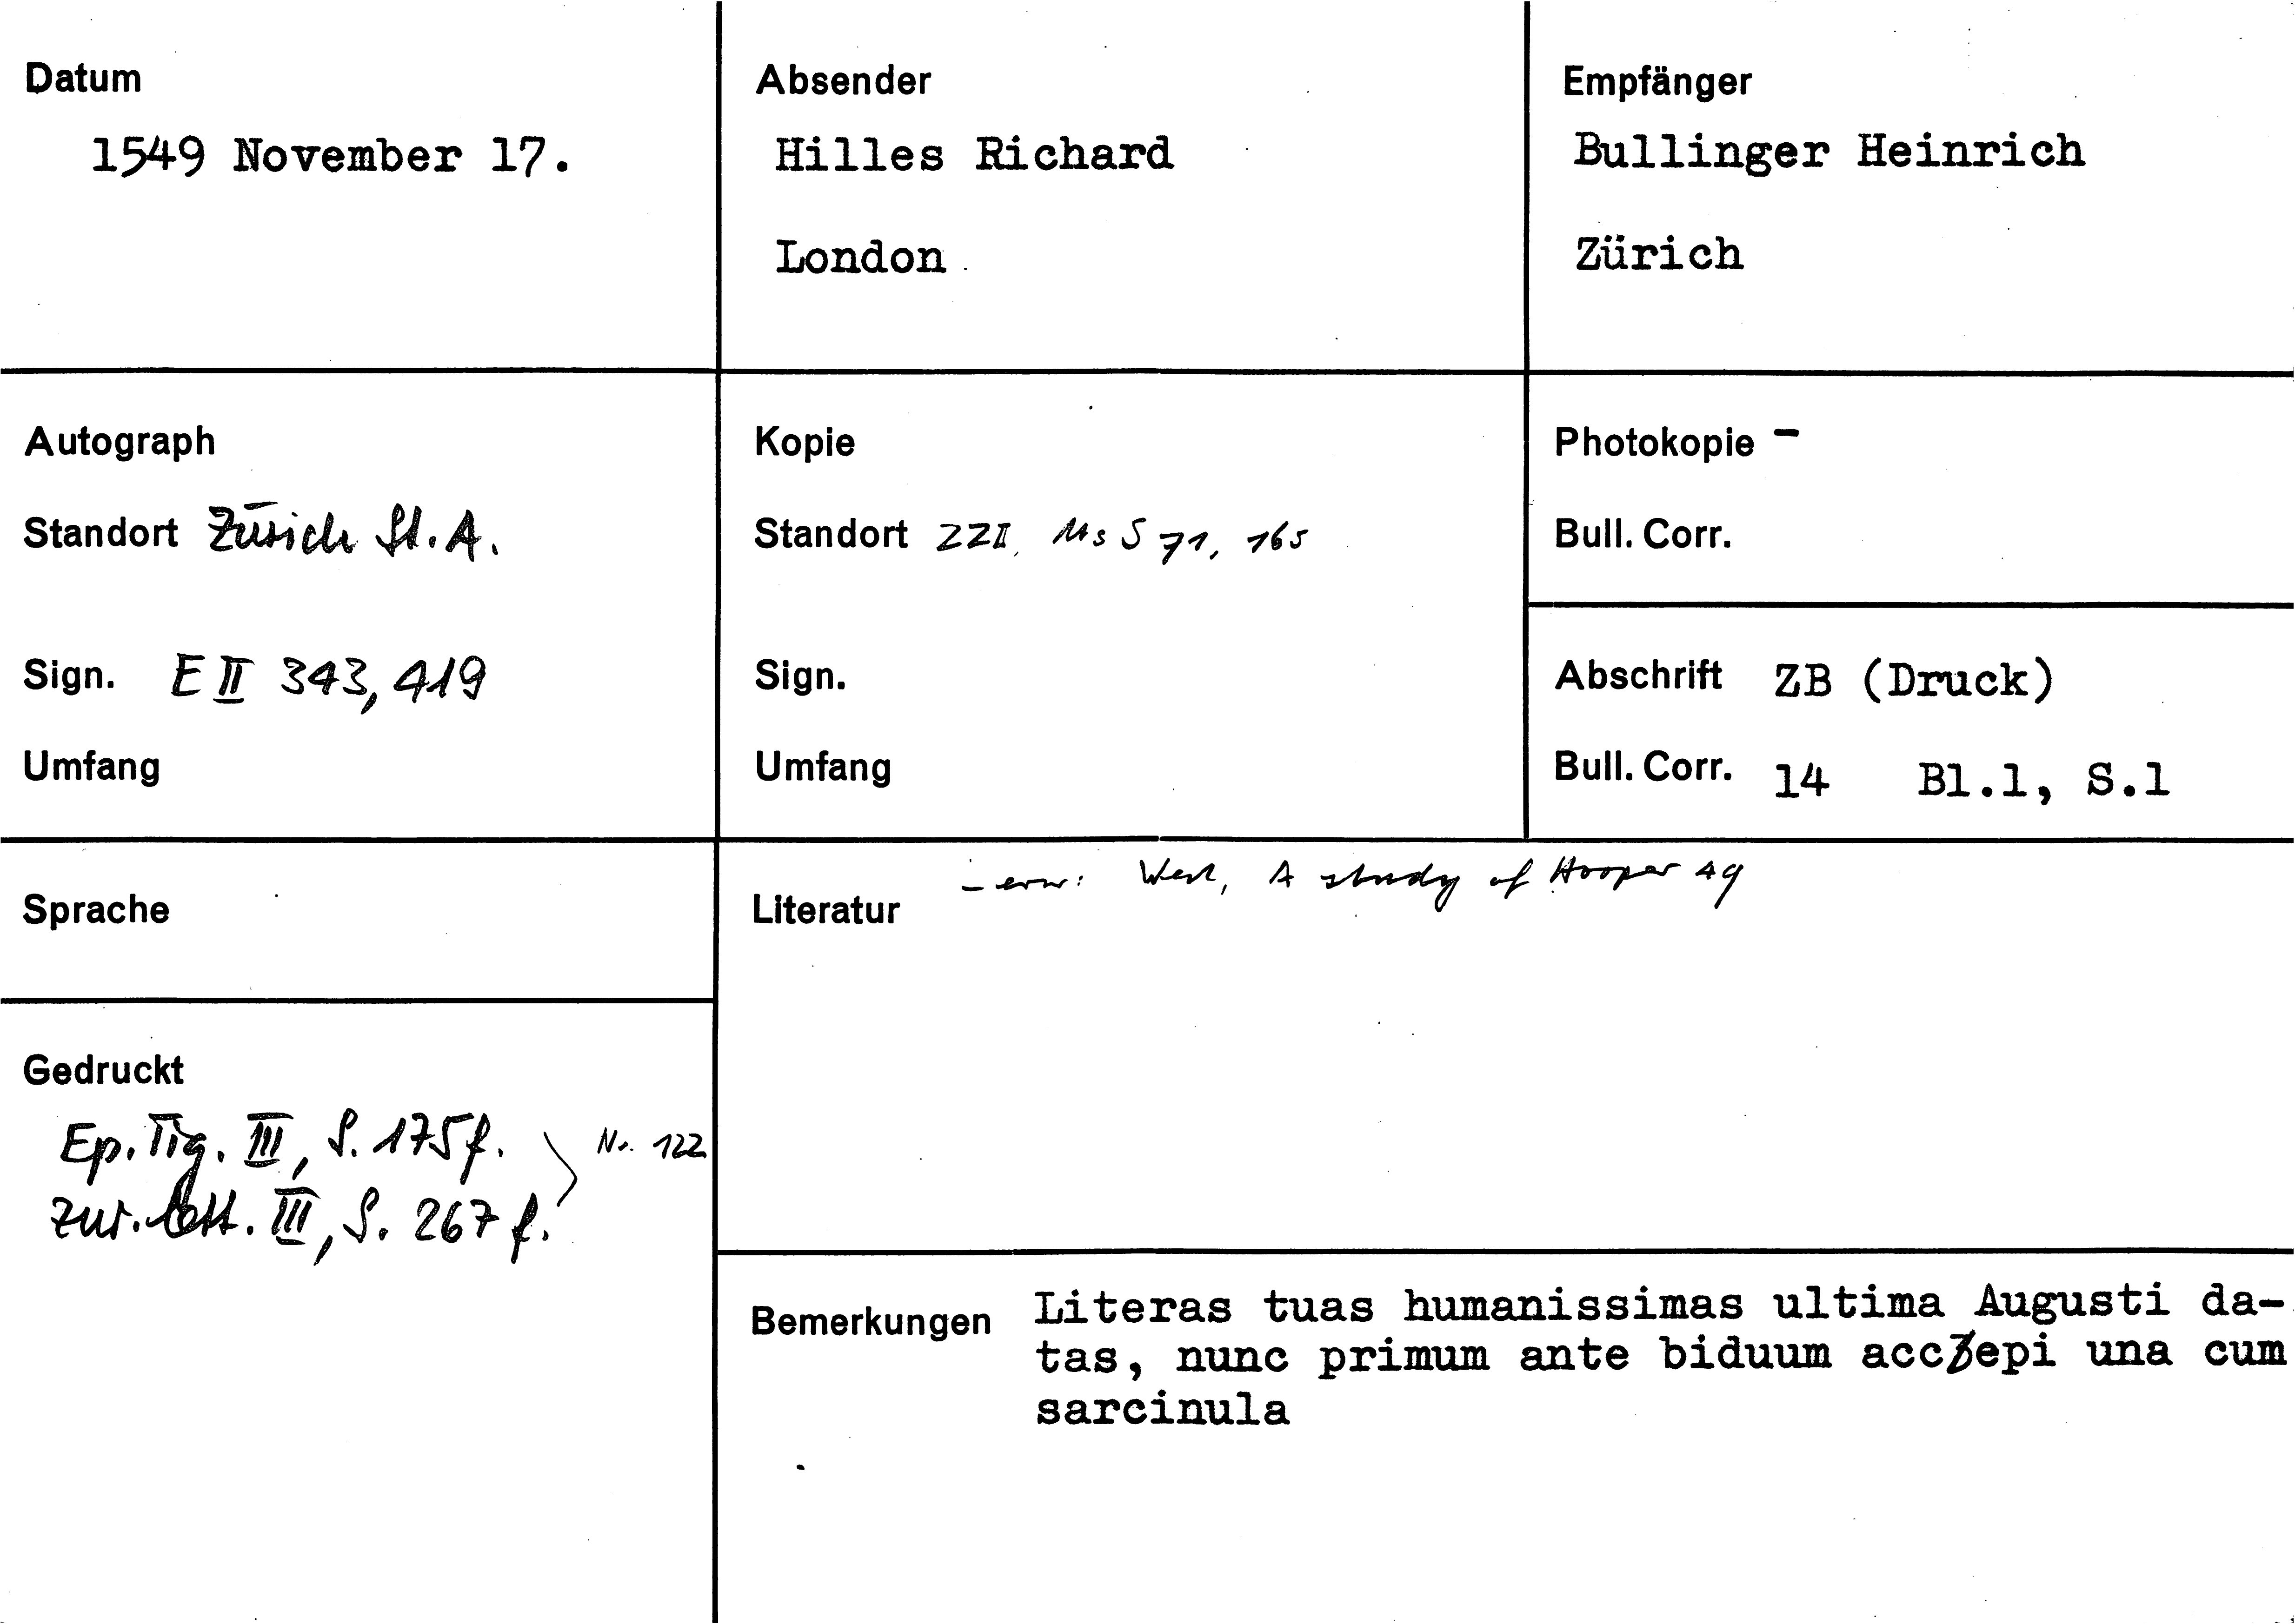 Datum
1549 November 17.
Absender
Hilles Richard
London
Empfänger
Bullinger Heinrich
Zürich
Autograph
Standort Zürich St. A.
Sign. E II 343, 419
Umfang
Kopie
Standort ZZII, Ms S 71, 165
Sign.
Umfang
Photokopie -
Bull. Corr.
Abschrift ZB (Druck)
Bull. Corr. 14 Bl.1, S.1
Sprache
Gedruckt
Ep. Tig. III, S. 175 f.
Zur. Lett. III, S. 267 f.
Nr. 122
Literatur
- erw: West, A study of Hooper 49
Bemerkungen Literas tuas humanissimas ultima Augusti da-
tas, nunc primum ante biduum accepi una cum
sarcinula